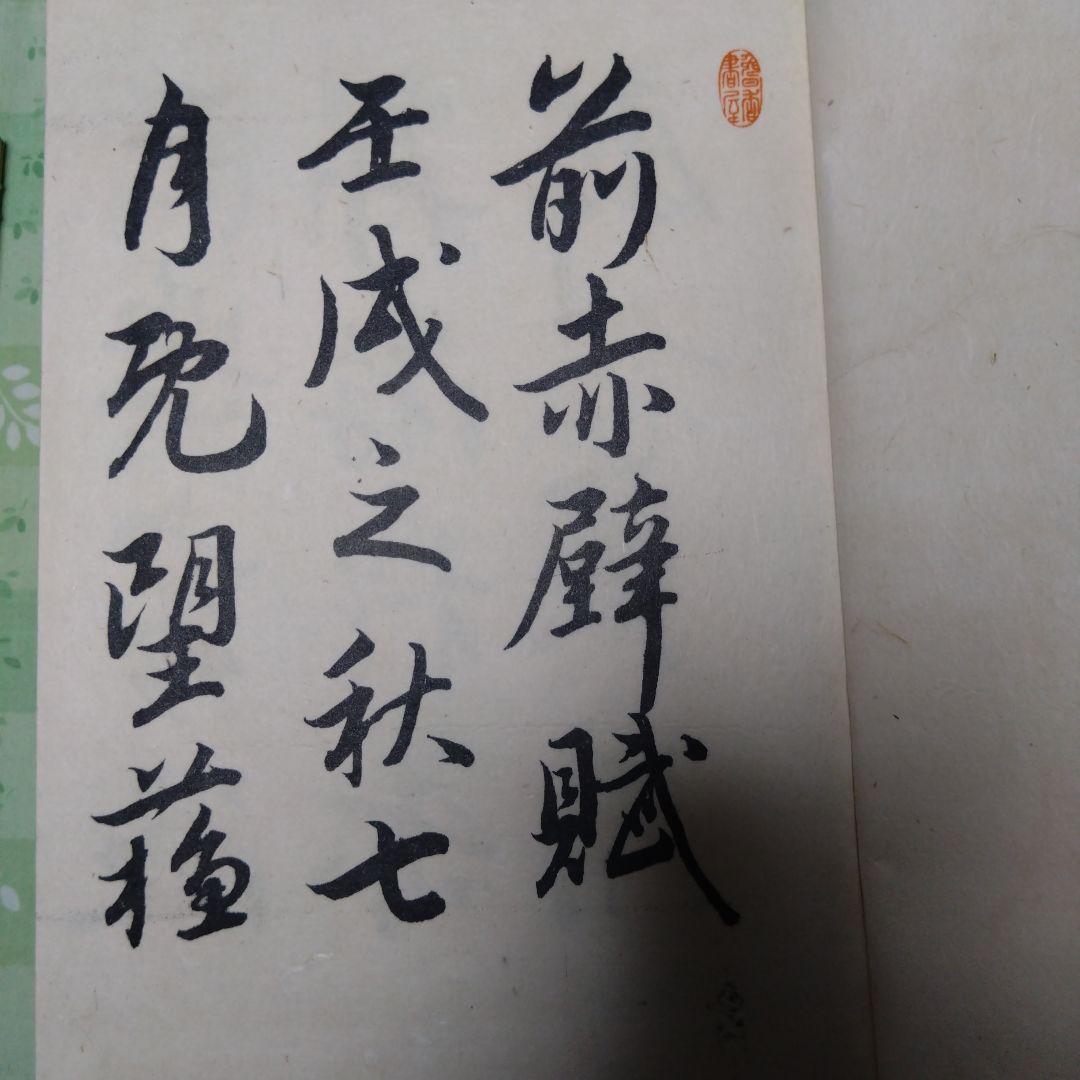 前赤壁賦
壬戌之秋七
月既望蘇
書屋